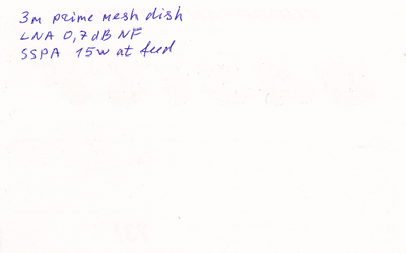 3m prime mesh dish
LNA 0,7dB NF
SSPA 15w at feed